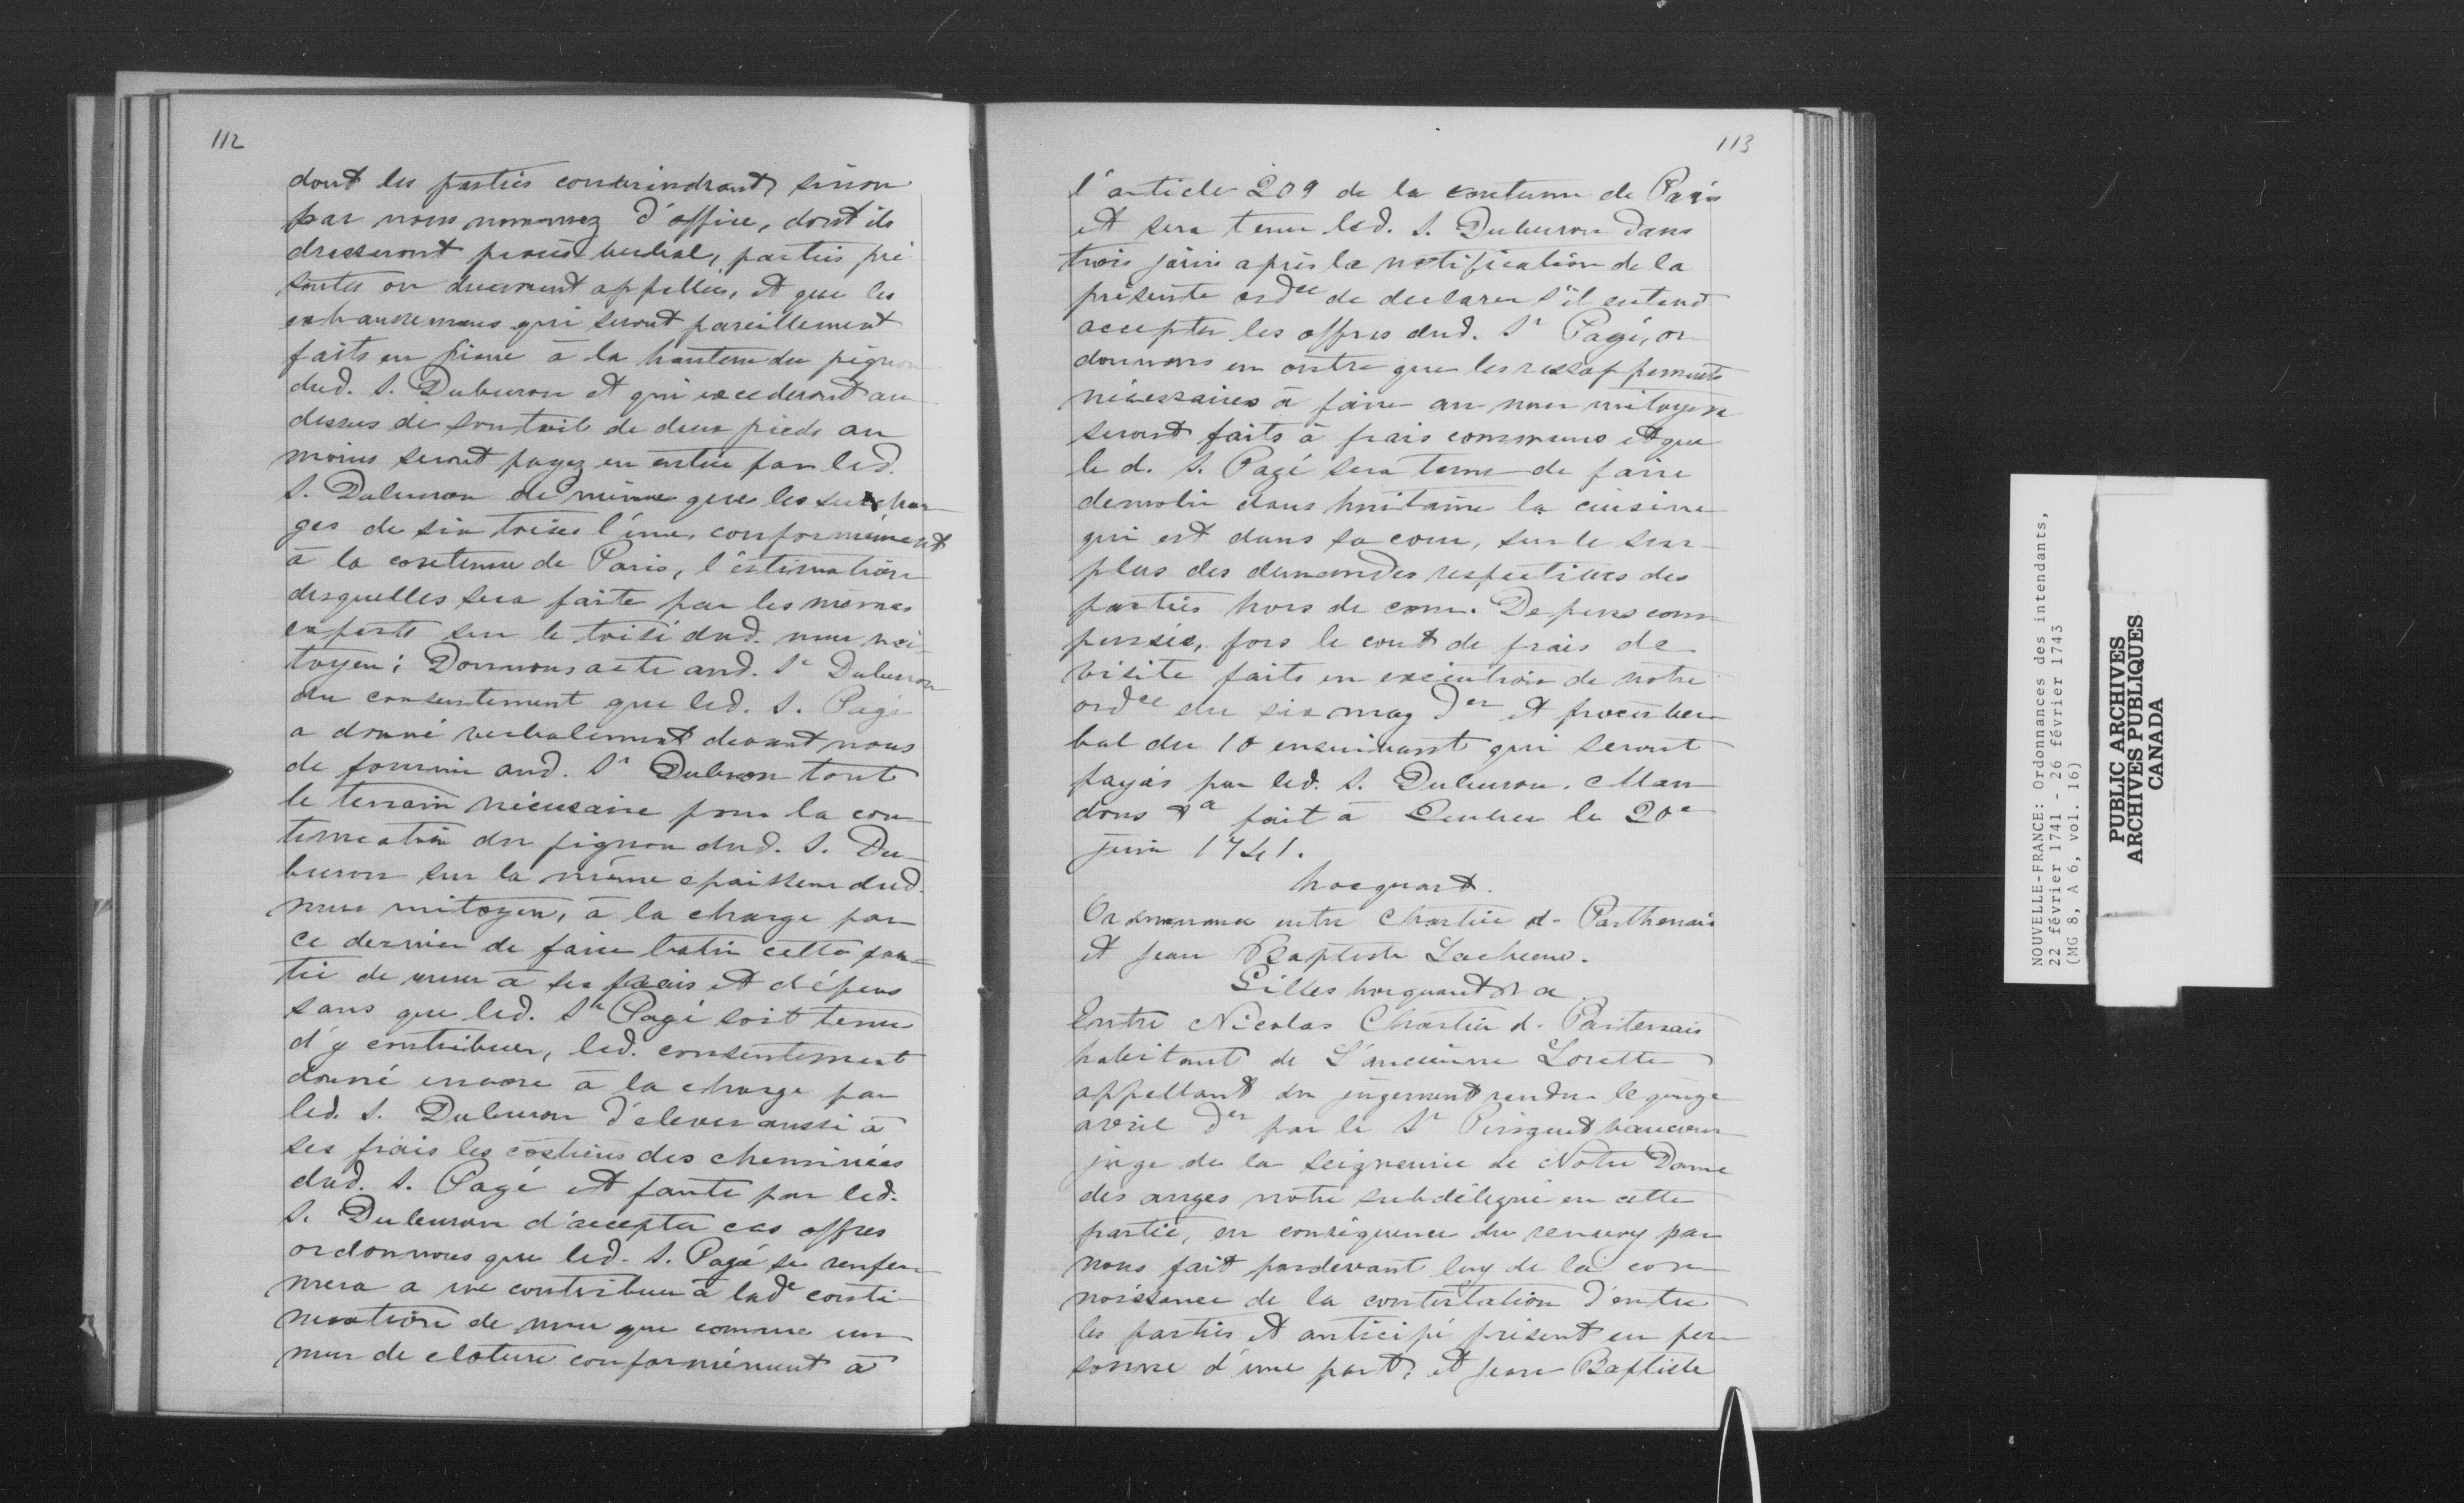 112
dont les parties conviendront, sinon
par nous nommez d'office, dont ils
dresseront procès verbal, parties pré
sentes ou duement appellées, et que les
exhaussemens qui seront pareillement
faits en pierre à la hauteur du pignon
dud. S. Duburon et qui excederont au
dessus de son toit de deux pieds au
moins seront payez en entier par led.
S. Duburon de même que les surchar
ges de six toises l'une, conformément
à la coutume de Paris, l'estimation
desquelles sera faite par les mêmes
experts sur le toisé dud. mur mi
toyen; Donnons acte aud. Sr Duburon
du consentement que led. S. Pagé
a donné verbalement devant nous
de fournir aud. Sr Duburon tout
le terrain nécessaire pour la con
tinuation du pignon dud. S. Du
buron sur la même épaisseur dud.
mur mitoyen, à la charge par
ce dernier de faire batir cette par
tie de mur à ses frais et dépens
sans que led. Sr Pagé soit tenu
d'y contribuer, led. consentement
donné encore à la charge par
led. S. Duburon d'élever aussi à
ses frais les costières des cheminées
dud. S. Pagé et faute par led.
S. Duburon d'accepter ces offres
ordonnons que led. S. Pagé se renfer
mera a ne contribuer à lade conti
nuation de mur que comme un
mur de cloture conformément à
113
l'article 209 de la coutume de Paris
et sera tenu led. S. Duburon dans
trois jours après la notification de la
présente ordce de declarer s'il entend
accepter les offres dud. Sr Pagé, or
donnons en outre que les
nécessaires à faire au mur mitoyen
seront faits à frais communs et que
le d. S. Pagé sera tenu de faire
demolir dans huitaine la cuisine
qui est dans sa cour, sur le sur
plus des demandes respectives des
parties hors de cour. Depens com
pensés, fors le cout de frais de
visite faits en exécution de notre
ordce du six may der et procès ver
bal du 10 ensuivant qui seront
payés par led. S. Duburon. Man
dons &a fait à Quebec le 20e
juin 1741.
hocquart.
Ordonnance entre Chartier d. Parthenais
et Jean Baptiste
Gilles hocquart &a
Entre Nicolas Chartier d. Partenais
habitant de L'ancienne Lorette
appellant du jugement rendu le quinze
avril der par le Sr
juge de la seigneurie de Notre Dame
des anges notre subdélégué en cette
partie, en conséquence du renvoy par
nous fait pardevant luy de la con
noissance de la contestation d'entre
les parties et anticipé présent en per
sonne d'une part, et Jean Baptiste
NOUVELLE-FRANCE: Ordonnances des intendants,
22 février 1741 - 26 février 1743
(MG 8, A 6, vol. 16)
PUBLIC ARCHIVES
ARCHIVES PUBLIQUES
CANADA